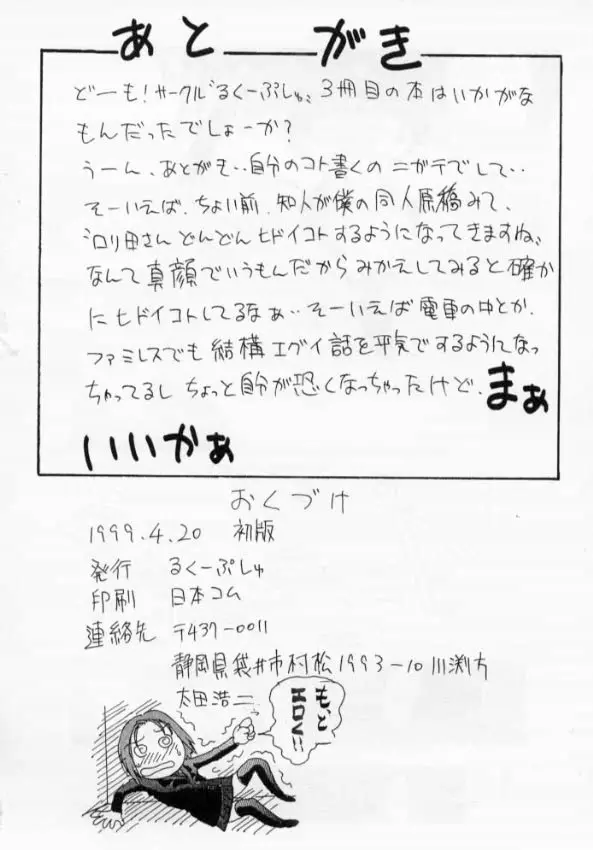 あとがき
どーも！サークル"るくーぷしゅ、3冊目の本はいかがな
もんだったでしょーか？
うーん、あとがき‥自分のコト書くのニガテでして‥
そーいえば、ちょい前、知人が僕の同人原稿みて、
沼田さんどんどんヒドイコトするようになってきますね、
なんて真顔でいうもんだからみかえしてみると確か
にヒドイコトしてるなぁ‥そーいえば電車の中とか、
ファミレスでも結構エグイ話を平気でするようになっ
ちゃってるしちょっと自分が恐くなっちゃったけど、まぁ
いいかぁ
おくづけ
1999.4.20 初版
発行 るくーぷしゅ
印刷 日本コム
連絡先 〒437-0011
静岡県袋井市村松1993-10川渕方
太田浩二
も、と